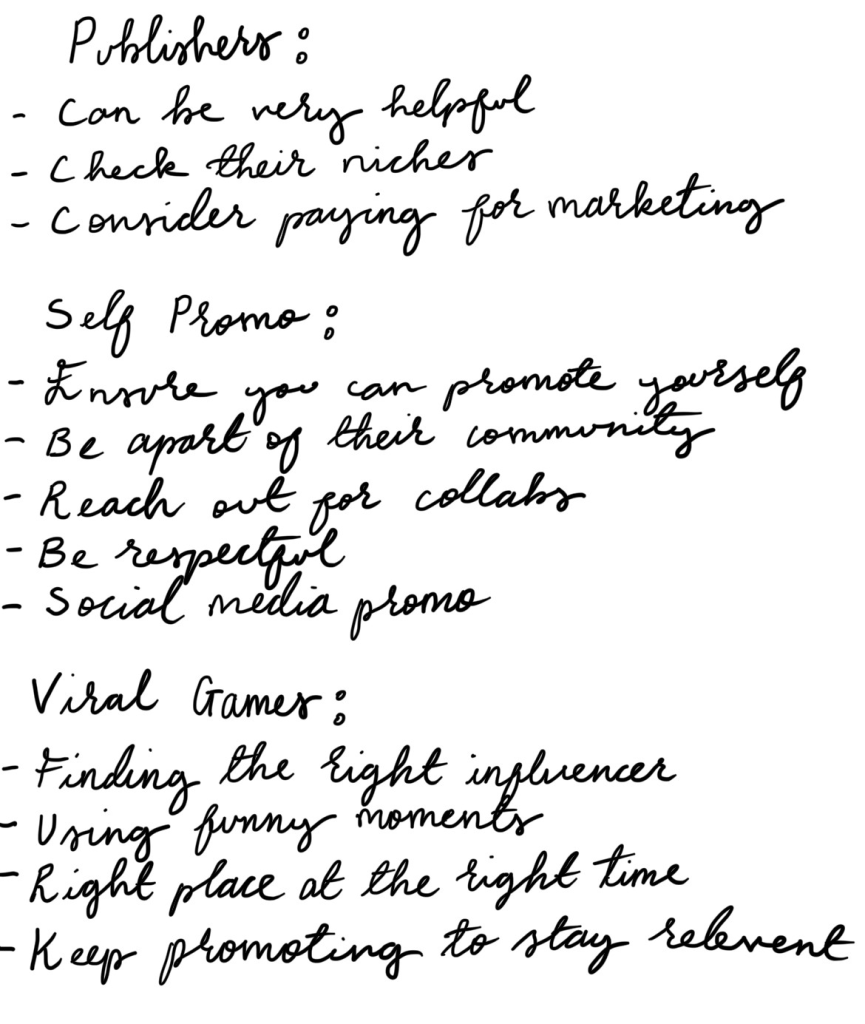 Publishers:
- Can be very helpful
- Check their niches
- Consider paying for marketing
Self Promo:
- Ensure you can promote yourself
- Be apart of their community
- Reach out for collabs
- Be respectful
- Social media promo
Viral Games:
- Finding the right influencer
- Using funny moments
- Right place at the right time
- Keep promoting to stay relevent